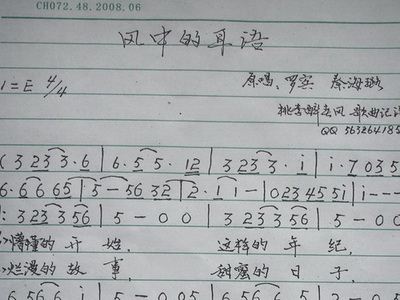 CH072.48.2008.06
风中的耳语
1=E 4/4 原唱、罗宾 蔡海璐
桃李醉春风 歌曲记谱
QQ 563264185
(3 2 3 3·6 | 6·5 5·12 | 3 2 3 3·i | i·7 0 3 5
6·6 6 6 5 | 5 - 5 6 3 2 | 2·1 1 - | 0 2 3 4 5 5 i | i - - -
: 3 2 3 3 5 6 | 5 - 0 0 | 3 2 3 3 5 6 | 5 - 0 0
懵懂的开始, 这样的年纪,
烂漫的故事, 甜蜜的日子,
5 6 6 i | 5 - 0 0 5 | 6 5 6 6 i 5 | 2 - 0 5